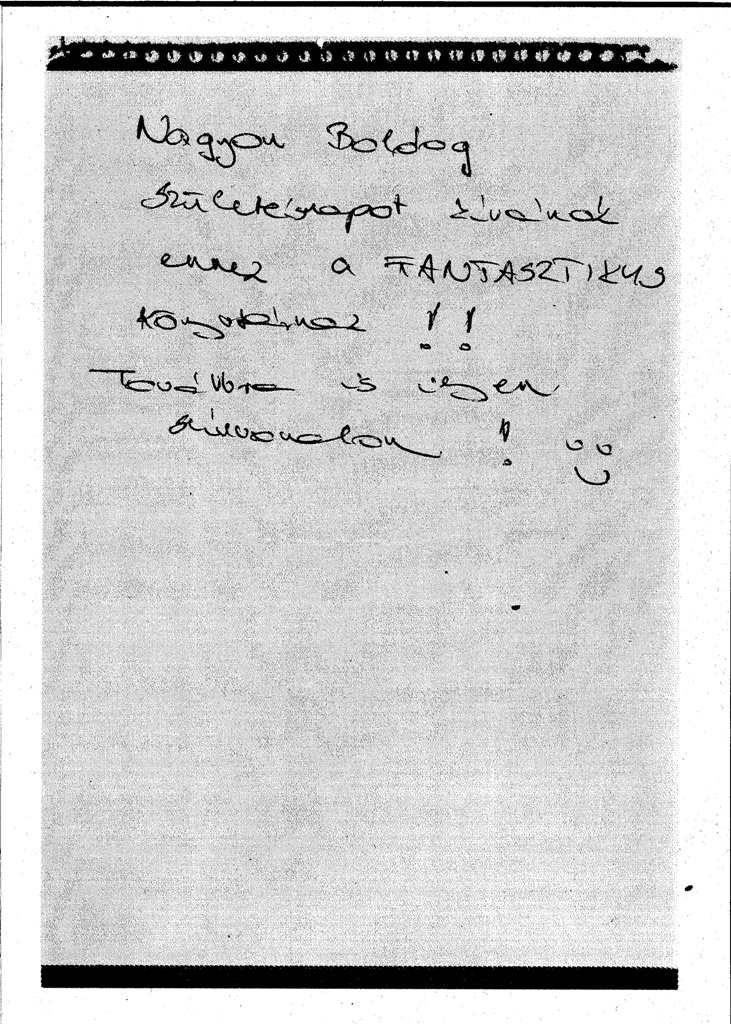 Nagyon Boldog
születésnapot kívánok
ennek a FANTASZTIKUS
könyvtárnak !!
Továbbra is ilyen
színvonalon ! :)